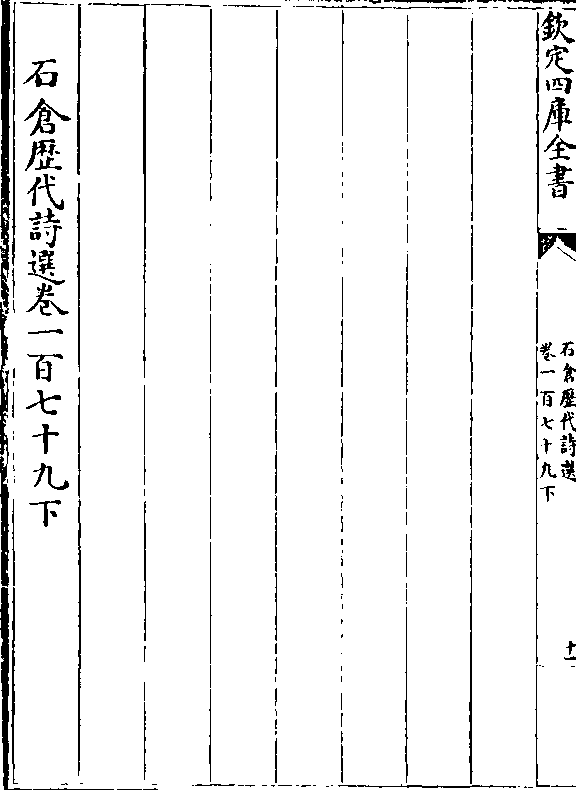 欽定四庫全書
石倉歴代詩選
卷一百七十九下
十一
石倉歴代詩選卷一百七十九下